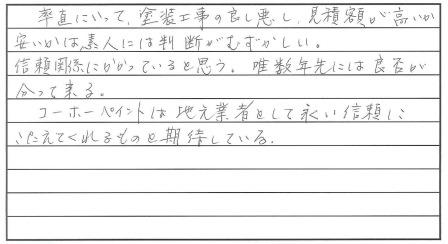 率直にいって、塗装工事の良し悪し、見積額が高いか
安いかは素人には判断がむずかしい。
信頼関係にかかっていると思う。唯数年先には良否が
分って来る。
コーホーペイントは地元業者として永い信頼に
こたえてくれるものと期待している。